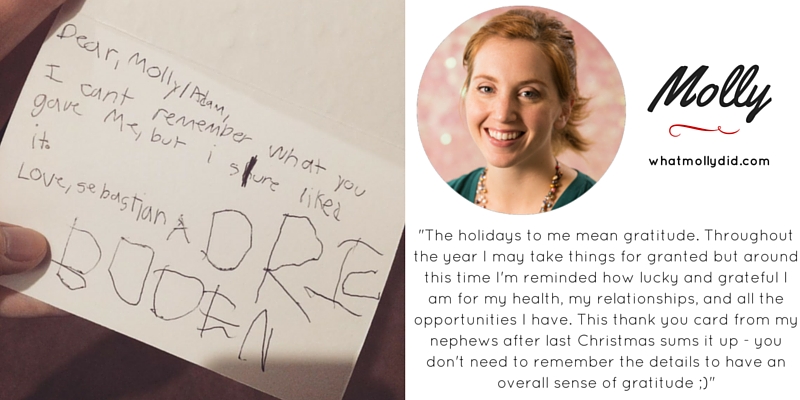 Dear, Molly/Adam,
I cant remember what you
gave Me, but i shure liked
it.
Love, sebastian A DRE
BODEN
Molly
whatmollydid.com
"The holidays to me mean gratitude. Throughout
the year I may take things for granted but around
this time I'm reminded how lucky and grateful I
am for my health, my relationships, and all the
opportunities I have. This thank you card from my
nephews after last Christmas sums it up - you
don't need to remember the details to have an
overall sense of gratitude ;)"